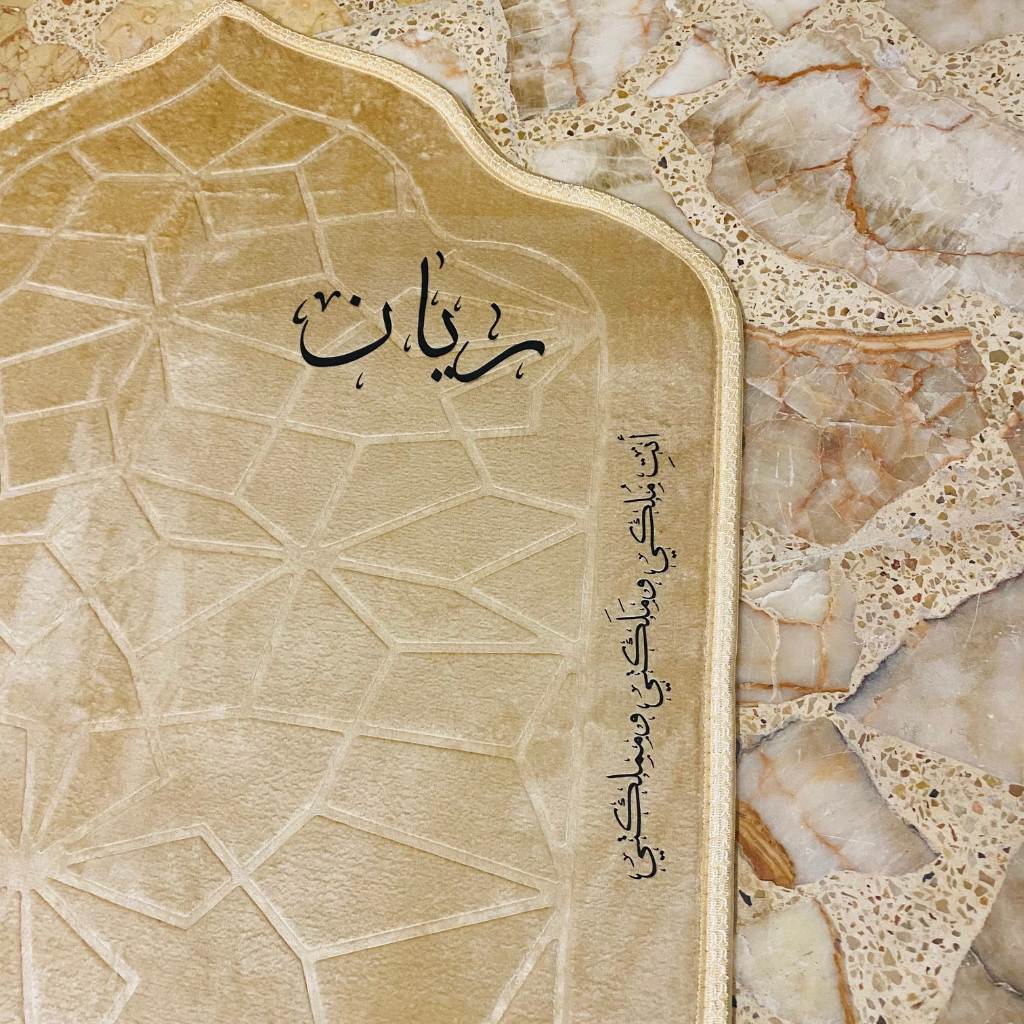 ريان
أنتِ مُلكي ومَلَكني ومملكتي